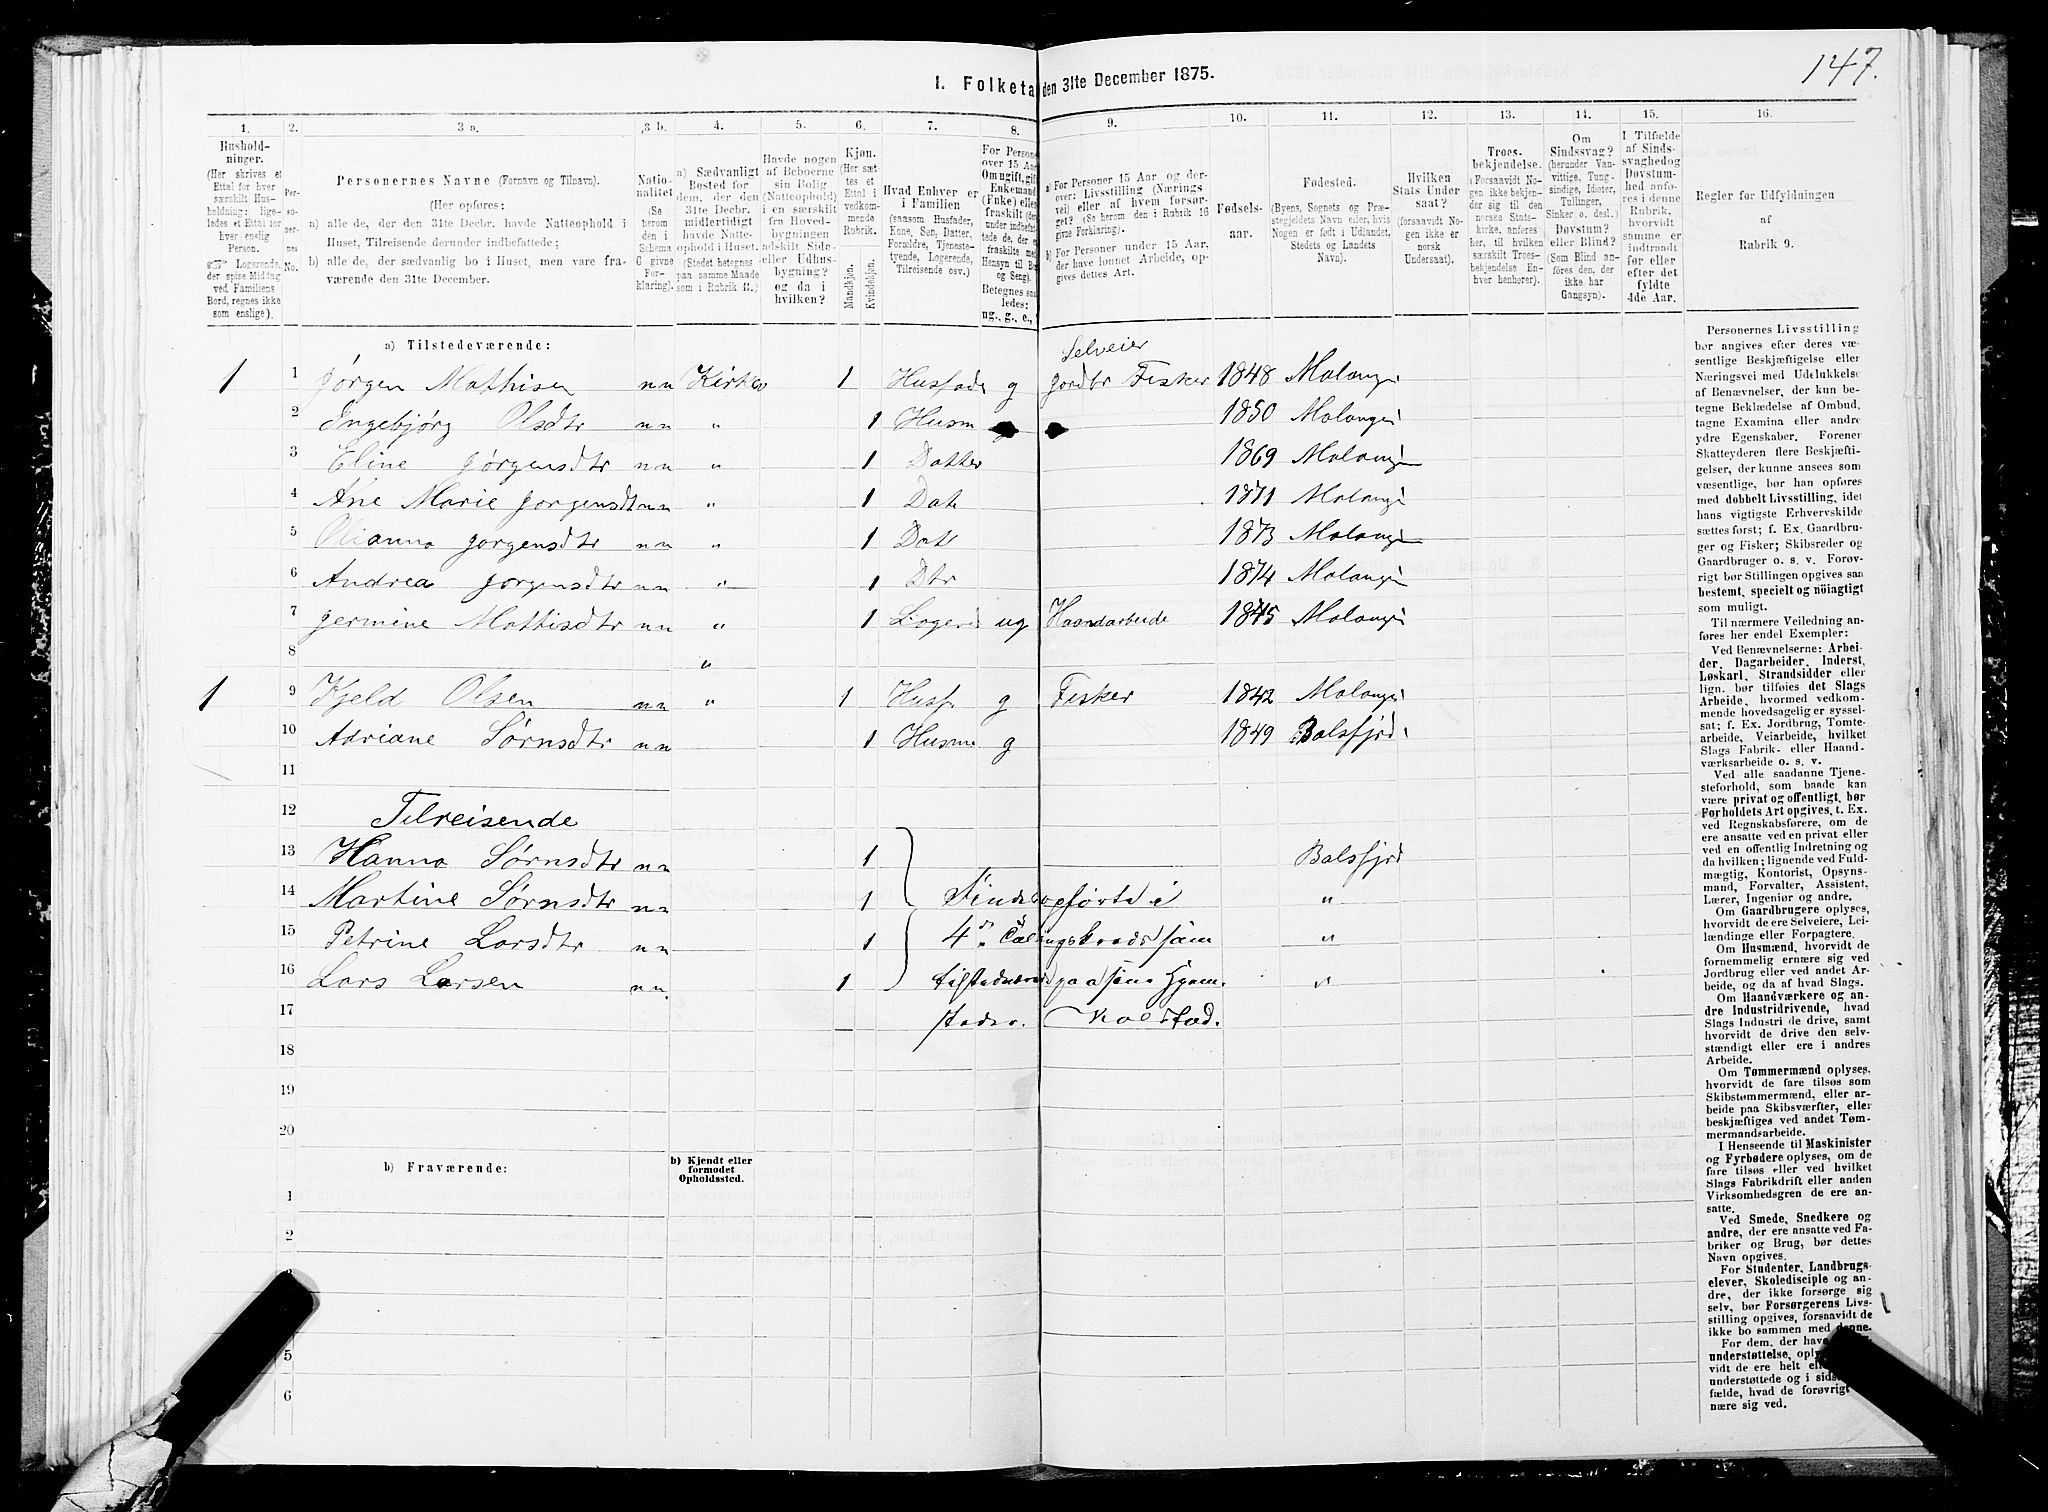 147.
1. Folketa den 31te December 1875.
1. 2. 3 a. 3 b. 4. 5. 6. 7. 8. 9. 10. 11. 12. 13. 14. 15. 16.
Husholdninger. (Her skrives et Ettal for hver særskilt Husholdning; ligeledes et Ettal for hver enslig Person. Logerende, der spise Middag ved Familiens Bord, regnes ikke som enslige).
Personernes No.
Personernes Navne (Fornavn og Tilnavn).
(Her opføres:
a) alle de, der den 31te Decbr. havde Natteophold i Huset, Tilreisende derunder indbefattede;
b) alle de, der sædvanlig bo i Huset, men vare fraværende den 31te December.
Nationalitet (Se herom den i Schema C givne Forklaring).
a) Sædvanligt Bosted for dem, der den 31te Decbr. midlertidigt havde Natteophold i Huset. (Stedet betegnes paa samme Maade som i Rubrik 11.)
Havde nogen af Beboerne sin Bolig (Natteophold) i en særskilt fra Hovedbygningen adskilt Side- eller Udhusbygning? og da i hvilken?
Kjøn. (Her sættes et Ettal i vedkommende Rubrik.
Mandkjøn. Kvindekjøn.
Hvad Enhver er i Familien (saasom Husfader, Kone, Søn, Datter, Forældre, Tjenestetyende, Logerende, Tilreisende osv.)
For Person over 15 Aar Om ugift, gift Enkemand (Enke) eller fraskilt
Betegnes saaledes: ng., g., e.,
a) For Personer 15 Aar og derover: Livsstilling (Næringsvei) eller af hvem forsørget? (Se herom den i Rubrik 16 givne Forklaring).
b) For Personer under 15 Aar, der have lønnet Arbeide, opgives dettes Art.
Fødselsaar.
Fødested. (Byens, Sognets og Præstegjeldets Navn eller, hvis Nogen er født i Udlandet, Stedets og Landets Navn).
Hvilken Stats Undersaat? (forsaavidt Nogen ikke er norsk Undersaat).
Troesbekjendelse. (Forsaavidt Nogen ikke bekjender sig til den norske Statskirke, anføres her, til hvilken særskilt Troesbekjendelse Enhver henhører).
Om Sindssvag? (herunder Vanvittige, Tungsindige, Idioter, Tullinger, Sinker o. desl.) Døvstum? eller Blind? (Som Blind anføres den, der ikke har Gangsyn).
I Tilfælde af Sindssvaghed og Døvstumhed anføres i denne Rubrik, hvorvidt samme er indtraadt før eller efter det fyldte 4de Aar.
Regler før Udfyldningen af Rubrik 9.
a) Tilstedeværende:
Selveier
1 1 Jørgen Mathisen nn Kirkev 1 Husfade g Jordbr Fisker 1848 Malange
2 Ingebjørg Olsdtr nn " 1 Husm g 1850 Malange
3 Eline Jørgensdtr nn " 1 Datter 1869 Malange
4 Ane Marie Jorgensdt nn " 1 Dat 1871 Malange
5 Olianna Jorgensdtr nn " 1 Dat 1873 Malange
6 Andrea Jorgensdtr nn " 1 Dtr 1874 Malange
7 Jermine Mattisdtr nn " 1 Logerd ug Haandarbeide 1845 Malange
8 "
1 9 Kjeld Olsen nn " 1 Husf g Fisker 1842 Malange
10 Adriane Sørnsdtr nn 1 Husm g 1849 Balsfjrd
11
12 Tilreisende
13 Hanna Sørnsdtr nn 1 Balsfjrd
14 Martine Sørnsdtr nn 1 Findes opførte i "
15 Petrine Larsdtr nn 1 4de Tællingskreds som "
16 Lars Larsen nn. 1 tilstedeværend paa sine Hjem "
17 steder.
18
19
20
b) Fraværende:
b) Kjendt eller formodet Opholdssted.
1
2
5
6
Personernes Livsstilling bør angives efter deres væsentlige Beskjæftigelse eller Næringsvei med Udelukkelse af Benævnelser, der kun betegne Beklædelse af Ombud, tagne Examina eller andre ydre Egenskaber. Forener Skatteyderen flere Beskjæftigelser, der kunne ansees som væsentlige, bør han opføres med dobbelt Livsstilling, idet hans vigtigste Erhvervskilde sættes først; f. Ex. Gaardbruger og Fisker; Skibsreder og Gaardbruger o. s. v. Forøvrigt bør Stillingen opgives saa bestemt, specielt og nöiagtigt som muligt.
Til nærmere Veiledning anføres her endel Exempler:
Ved Benævnelserne: Arbeider, Dagarbeider, Inderst, Løskarl, Strandsidder eller lign. bør tilføies det Slags Arbeide, hvormed vedkommende hovedsagelig er sysselsat; f. Ex. Jordbrug, Tomtearbeide, Veiarbeide, hvilket Slags Fabrik- eller Haandværksarbeide o. s. v.
Ved alle saadanne Tjenesteforhold, som baade kan være privat og offentligt, bør Forholdets Art opgives, t. Ex. ved Regnskabsførere, om de ere ansatte ved en privat eller ved en offentlig Indretning og da hvilken; lignende ved Fuldmægtig, Kontorist, Opsynsmand, Forvalter, Assistent, Lærer, Ingeniør og andre.
Om Gaardbrugere oplyses, hvorvidt de ere Selveiere, Leilændinge eller Forpagtere.
Om Husmænd, hvorvidt de fornemmelig ernære sig ved Jordbrug eller ved andet Arbeide, og da af hvad Slags.
Om Haandværkere og andre Industridrivende, hvad Slags Industri de drive, samt hvorvidt de drive den selvstændigt eller ere i andres Arbeide.
Om Tømmermænd oplyses, hvorvidt de fare tilsøs som Skibstømmermænd, eller arbeide paa Skibsværfter, eller beskjæftiges ved andet Tømmermandsarbeide.
I Henseende til Maskinister og Fyrbødere oplyses, om de fare tilsøs eller ved hvilket Slags Fabrikdrift eller anden Virksomhedsgren de ere ansatte.
Ved Smede, Snedkere og andre, der ere ansatte ved Fabriker og Brug, bør dettes Navn opgives.
For Studenter, Landbrugselever, Skoledisciple og andre, der ikke forsørge sig selv, bør Forsørgerens Livsstilling opgives, forsaavidt de ikke bo sammen med denne.
For dem, der have understøttelse, vidt de ere helt understøttede og i sidst fælde, hvad de forøvrigt nære sig ved.